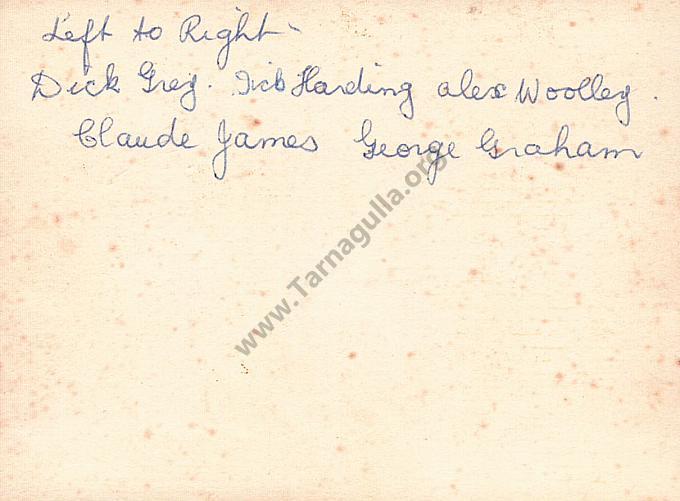 Left to Right -
Dick Grey. Harding alex Woolley.
Claude James George Graham
www.Tarnagulla.org